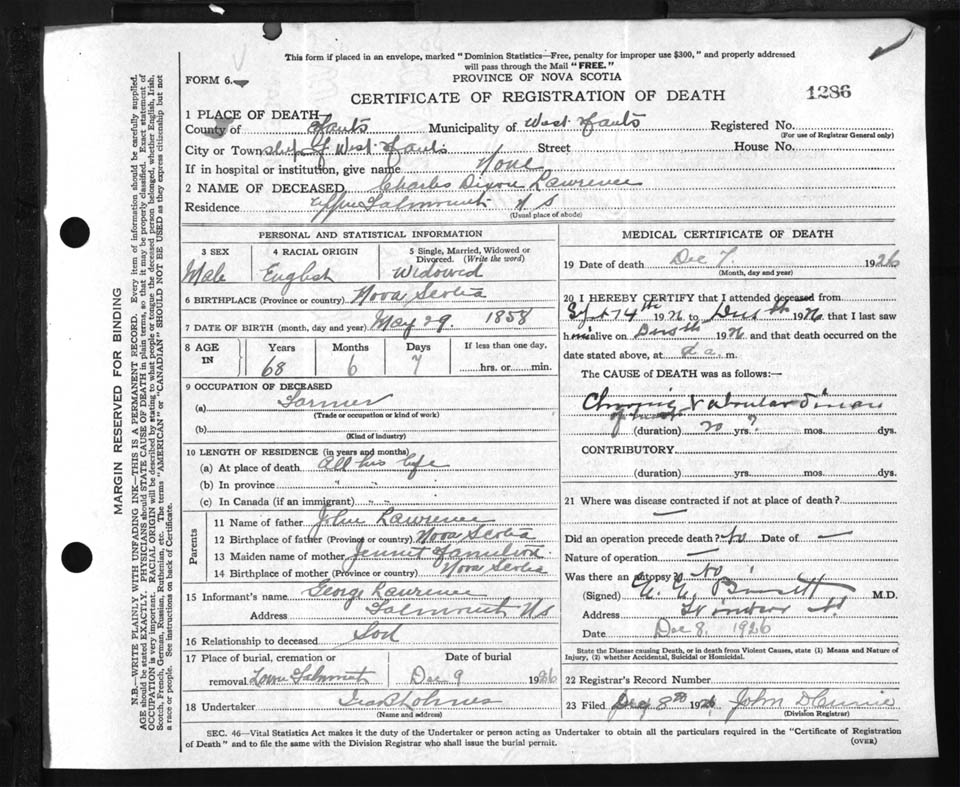 This form if placed in an envelope, marked "Dominion Statistics—Free, penalty for improper use $300," and properly addressed
will pass through the Mail "FREE."
FORM 6.
PROVINCE OF NOVA SCOTIA
CERTIFICATE OF REGISTRATION OF DEATH
1286
1 PLACE OF DEATH
County of Hants Municipality of West Hants Registered No.
(For use of Registrar General only)
City or Township of West Hants Street House No.
If in hospital or institution, give name None
2 NAME OF DECEASED Charles Dixon Lawrence
Residence Upper Falmouth N S
(Usual place of abode)
PERSONAL AND STATISTICAL INFORMATION
3 SEX 4 RACIAL ORIGIN 5 Single, Married, Widowed or
Divorced (Write the word)
Male English Widowed
6 BIRTHPLACE (Province or country) Nova Scotia
7 DATE OF BIRTH (month, day and year) May 29. 1858
8 AGE IN Years Months Days If less than one day,
68 6 7 hrs. or min.
9 OCCUPATION OF DECEASED
(a) Farmer
(Trade or occupation or kind of work)
(b)
(Kind of industry)
10 LENGTH OF RESIDENCE (in years and months)
(a) At place of death All his life
(b) In province " " "
(c) In Canada (if an immigrant) " " "
Parents
11 Name of father John Lawrence
12 Birthplace of father (Province or country) Nova Scotia
13 Maiden name of mother Jennet
14 Birthplace of mother (Province or country) Nova Scotia
15 Informant's name George Lawrence
Address Falmouth N S
16 Relationship to deceased Son
17 Place of burial, cremation or Date of burial
removal Falmouth Dec 9 1926
18 Undertaker Holmes
(Name and address)
MEDICAL CERTIFICATE OF DEATH
19 Date of death Dec 7. 1926
(Month, day and year)
20 I HEREBY CERTIFY that I attended deceased from
192 to 192 that I last saw
h im alive on 192 and that death occurred on the
date stated above, at a. m.
The CAUSE of DEATH was as follows:—
Chronic Valvular Disease
of heart
(duration) 20 yrs.? mos. dys.
CONTRIBUTORY
(duration) yrs. mos. dys.
21 Where was disease contracted if not at place of death?
—
Did an operation precede death? No Date of —
Nature of operation —
Was there an autopsy? No
(Signed) M.D.
Address Windsor NS
Date Dec 8. 1926
State the Disease causing Death, or in death from Violent Causes, state (1) Means and Nature of
Injury, (2) whether Accidental, Suicidal or Homicidal.
22 Registrar's Record Number
23 Filed Dec 8th 1926 John D
(Division Registrar)
SEC. 46—Vital Statistics Act makes it the duty of the Undertaker or person acting as Undertaker to obtain all the particulars required in the "Certificate of Registration
of Death" and to file the same with the Division Registrar who shall issue the burial permit. (OVER)
MARGIN RESERVED FOR BINDING
N.B.—WRITE PLAINLY WITH UNFADING INK—THIS IS A PERMANENT RECORD. Every item of information should be carefully supplied.
AGE should be stated EXACTLY. PHYSICIANS should STATE CAUSE OF DEATH in plain terms, so that it may be properly classified. Exact statement of
OCCUPATION is very important. RACIAL ORIGIN will be described by stating to what people or tongue the deceased person belonged, whether English, Irish,
Scotch, French, German, Russian, Ruthenian, etc. The terms "AMERICAN" or "CANADIAN" SHOULD NOT BE USED as they express citizenship but not
a race or people. See instructions on back of Certificate.